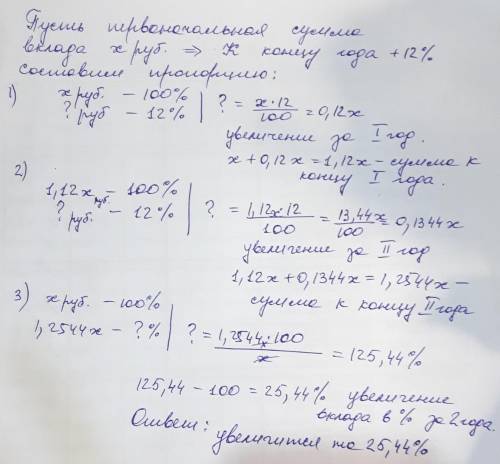 Пусть первоначальная сумма
вклада x руб. ⇒ К концу года +12%
составим пропорцию:
1) x руб. – 100%
? руб – 12% | ? = x·12/100 = 0,12x
увеличение за I год.
x + 0,12x = 1,12x – сумма к
концу I года.
2)
1,12x руб. – 100%
? руб. – 12% | ? = 1,12x·12/100 = 13,44x/100 = 0,1344x
увеличение за II год
1,12x + 0,1344x = 1,2544x –
сумма к концу II года
3) x руб. – 100%
1,2544x – ?% | ? = 1,2544x·100/x = 125,44%
125,44 – 100 = 25,44% увеличение
вклада в % за 2 года.
Ответ: увеличится на 25,44%